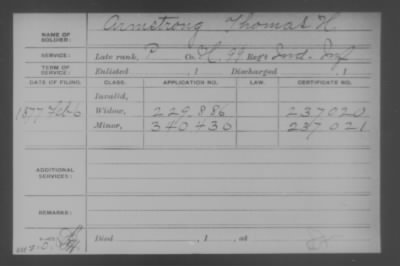 NAME OF SOLDIER: Armstrong Thomas H.
SERVICE: Late rank, P Co. H, 99 Reg't Ind. Inf
TERM OF SERVICE: Enlisted , 1 Discharged , 1
DATE OF FILING. CLASS. APPLICATION NO. LAW. CERTIFICATE NO.
Invalid,
1877 Feb 6 Widow, 229.886 237020
Minor, 340430 237021
ADDITIONAL SERVICES:
REMARKS:
Died , 1 , at